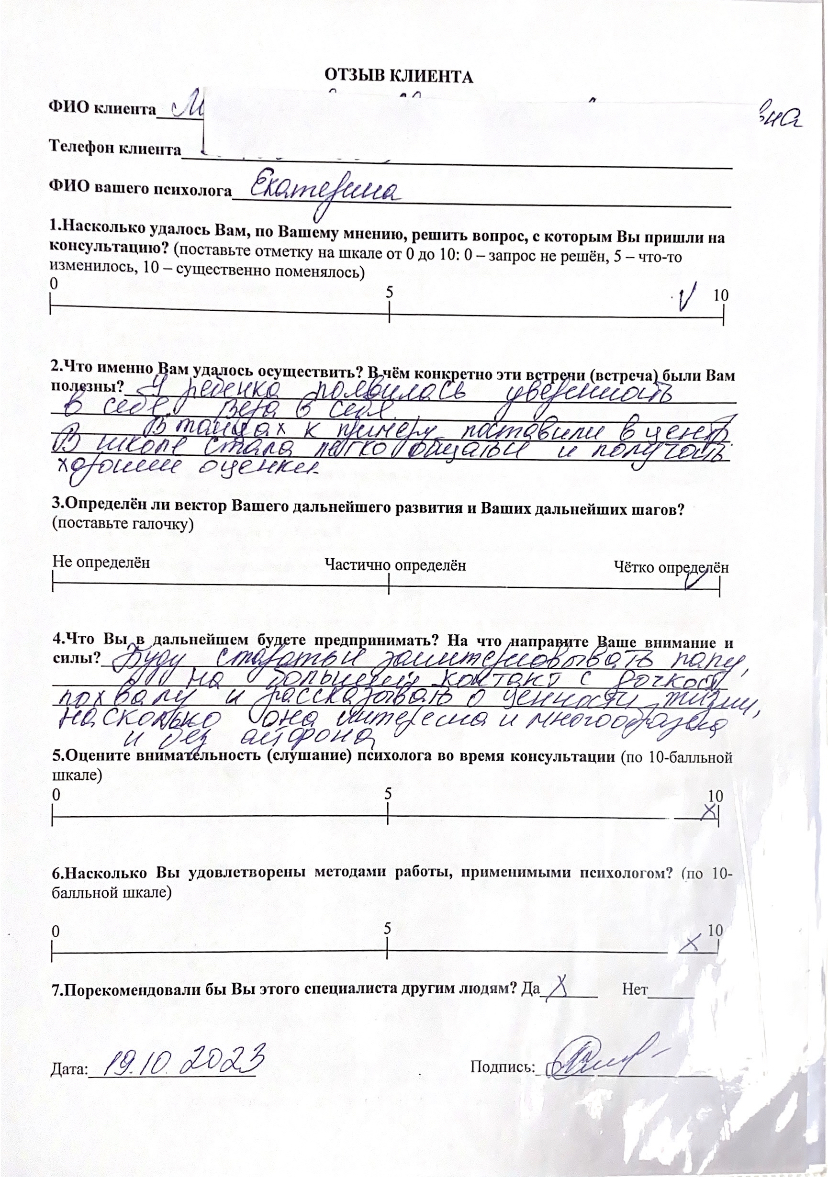 ОТЗЫВ КЛИЕНТА
ФИО клиента М вна
Телефон клиента
ФИО вашего психолога Екатерина
1.Насколько удалось Вам, по Вашему мнению, решить вопрос, с которым Вы пришли на
консультацию? (поставьте отметку на шкале от 0 до 10: 0 – запрос не решён, 5 – что-то
изменилось, 10 – существенно поменялось)
0 5 V 10
2.Что именно Вам удалось осуществить? В чём конкретно эти встречи (встреча) были Вам
полезны? У ребенка появилась уверенность
в себе, вера в себя.
В танцах к примеру поставили в центр.
В школе стала легко общаться и получать
хорошие оценки.
3.Определён ли вектор Вашего дальнейшего развития и Ваших дальнейших шагов?
(поставьте галочку)
Не определён Частично определён Чётко определён
V
4.Что Вы в дальнейшем будете предпринимать? На что направите Ваше внимание и
силы? Буду стараться заинтересовывать папу,
на больший контакт с дочкой,
похвалу и рассказываю о ценности жизни,
насколько она интересна и многообразна
и без айфона
5.Оцените внимательность (слушание) психолога во время консультации (по 10-балльной
шкале)
0 5 10
X
6.Насколько Вы удовлетворены методами работы, применимыми психологом? (по 10-
балльной шкале)
0 5 10
X
7.Порекомендовали бы Вы этого специалиста другим людям? Да X Нет
Дата: 19.10.2023 Подпись: